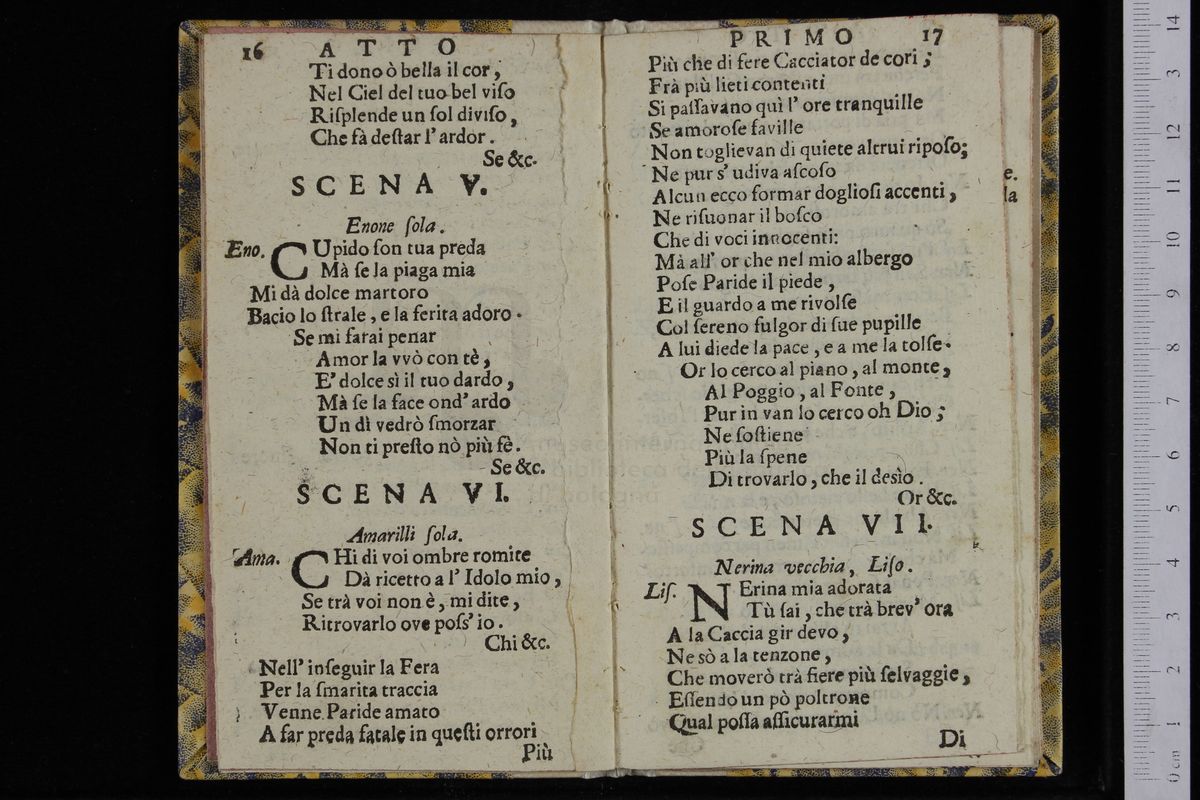 16 ATTO
Ti dono ò bella il cor,
Nel Ciel del tuo bel viſo
Riſplende un ſol diviſo,
Che fà deſtar l' ardor.
Se &c.
SCENA V.
Enone ſola.
Eno. CUpido ſon tua preda
Mà ſe la piaga mia
Mi dà dolce martoro
Bacio lo ſtrale, e la ferita adoro.
Se mi farai penar
Amor la vvò con tè,
E' dolce sì il tuo dardo,
Mà ſe la face ond' ardo
Un dì vedrò ſmorzar
Non ti preſto nò più fè.
Se &c.
SCENA VI.
Amarilli ſola.
Ama. CHi di voi ombre romite
Dà ricetto a l' Idolo mio,
Se trà voi non è, mi dite,
Ritrovarlo ove poſs' io.
Chi &c.
Nell' inſeguir la Fera
Per la ſmarita traccia
Venne Paride amato
A far preda fatale in queſti orrori
Più
PRIMO 17
Più che di fere Cacciator de cori;
Frà più lieti contenti
Si paſſavano quì l' ore tranquille
Se amoroſe faville
Non toglievan di quiete altrui ripoſo;
Ne pur s' udiva aſcoſo
Alcun ecco formar doglioſi accenti,
Ne riſuonar il boſco
Che di voci innocenti:
Mà all' or che nel mio albergo
Poſe Paride il piede,
E il guardo a me rivolſe
Col ſereno fulgor di ſue pupille
A lui diede la pace, e a me la tolſe.
Or lo cerco al piano, al monte,
Al Poggio, al Fonte,
Pur in van lo cerco oh Dio;
Ne ſoſtiene
Più la ſpene
Di trovarlo, che il desìo.
Or &c.
SCENA VII.
Nerina vecchia, Liſo.
Liſ. NErina mia adorata
Tù ſai, che trà brev' ora
A la Caccia gir devo,
Ne sò a la tenzone,
Che moverò trà fiere più ſelvaggie,
Eſſendo un pò poltrone
Qual poſſa aſſicurarmi
Di